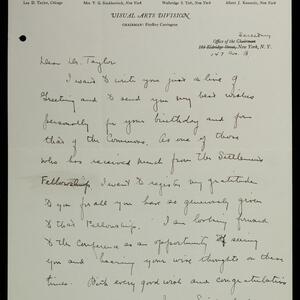 Leo D. Taylor, Chicago Mrs. V. G. Simkhovitch, New York Walbridge S. Taft, New York Albert J. Kennedy, New York
VISUAL ARTS DIVISION
CHAIRMAN: FitzRoy Carrington
Secretary
Office of the Chairman
184 Eldridge Street, New York, N. Y.
147 Ave. B
Dear Dr. Taylor
I want to write you just a line of
greeting and to send you my best wishes
personally for your birthday and for
that of the Commons. As one of those
who has received much from the Settlements
Fellowship, I want to register my gratitude
to you for all you have so generously given
to that Fellowship. I am looking forward
to the Conference as an opportunity of seeing
you and hearing your wise thoughts on these
times. With every good wish and congratulations